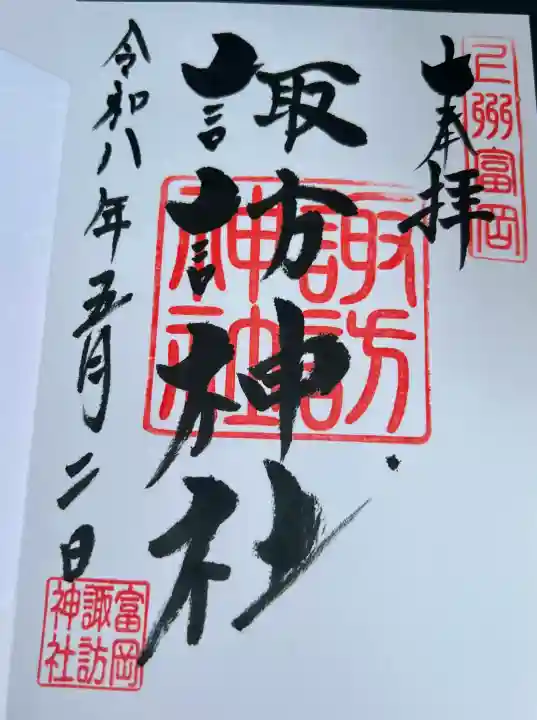 上州富岡
奉拝
諏訪神社
諏訪
神社
令和八年五月二日
富岡
諏訪
神社